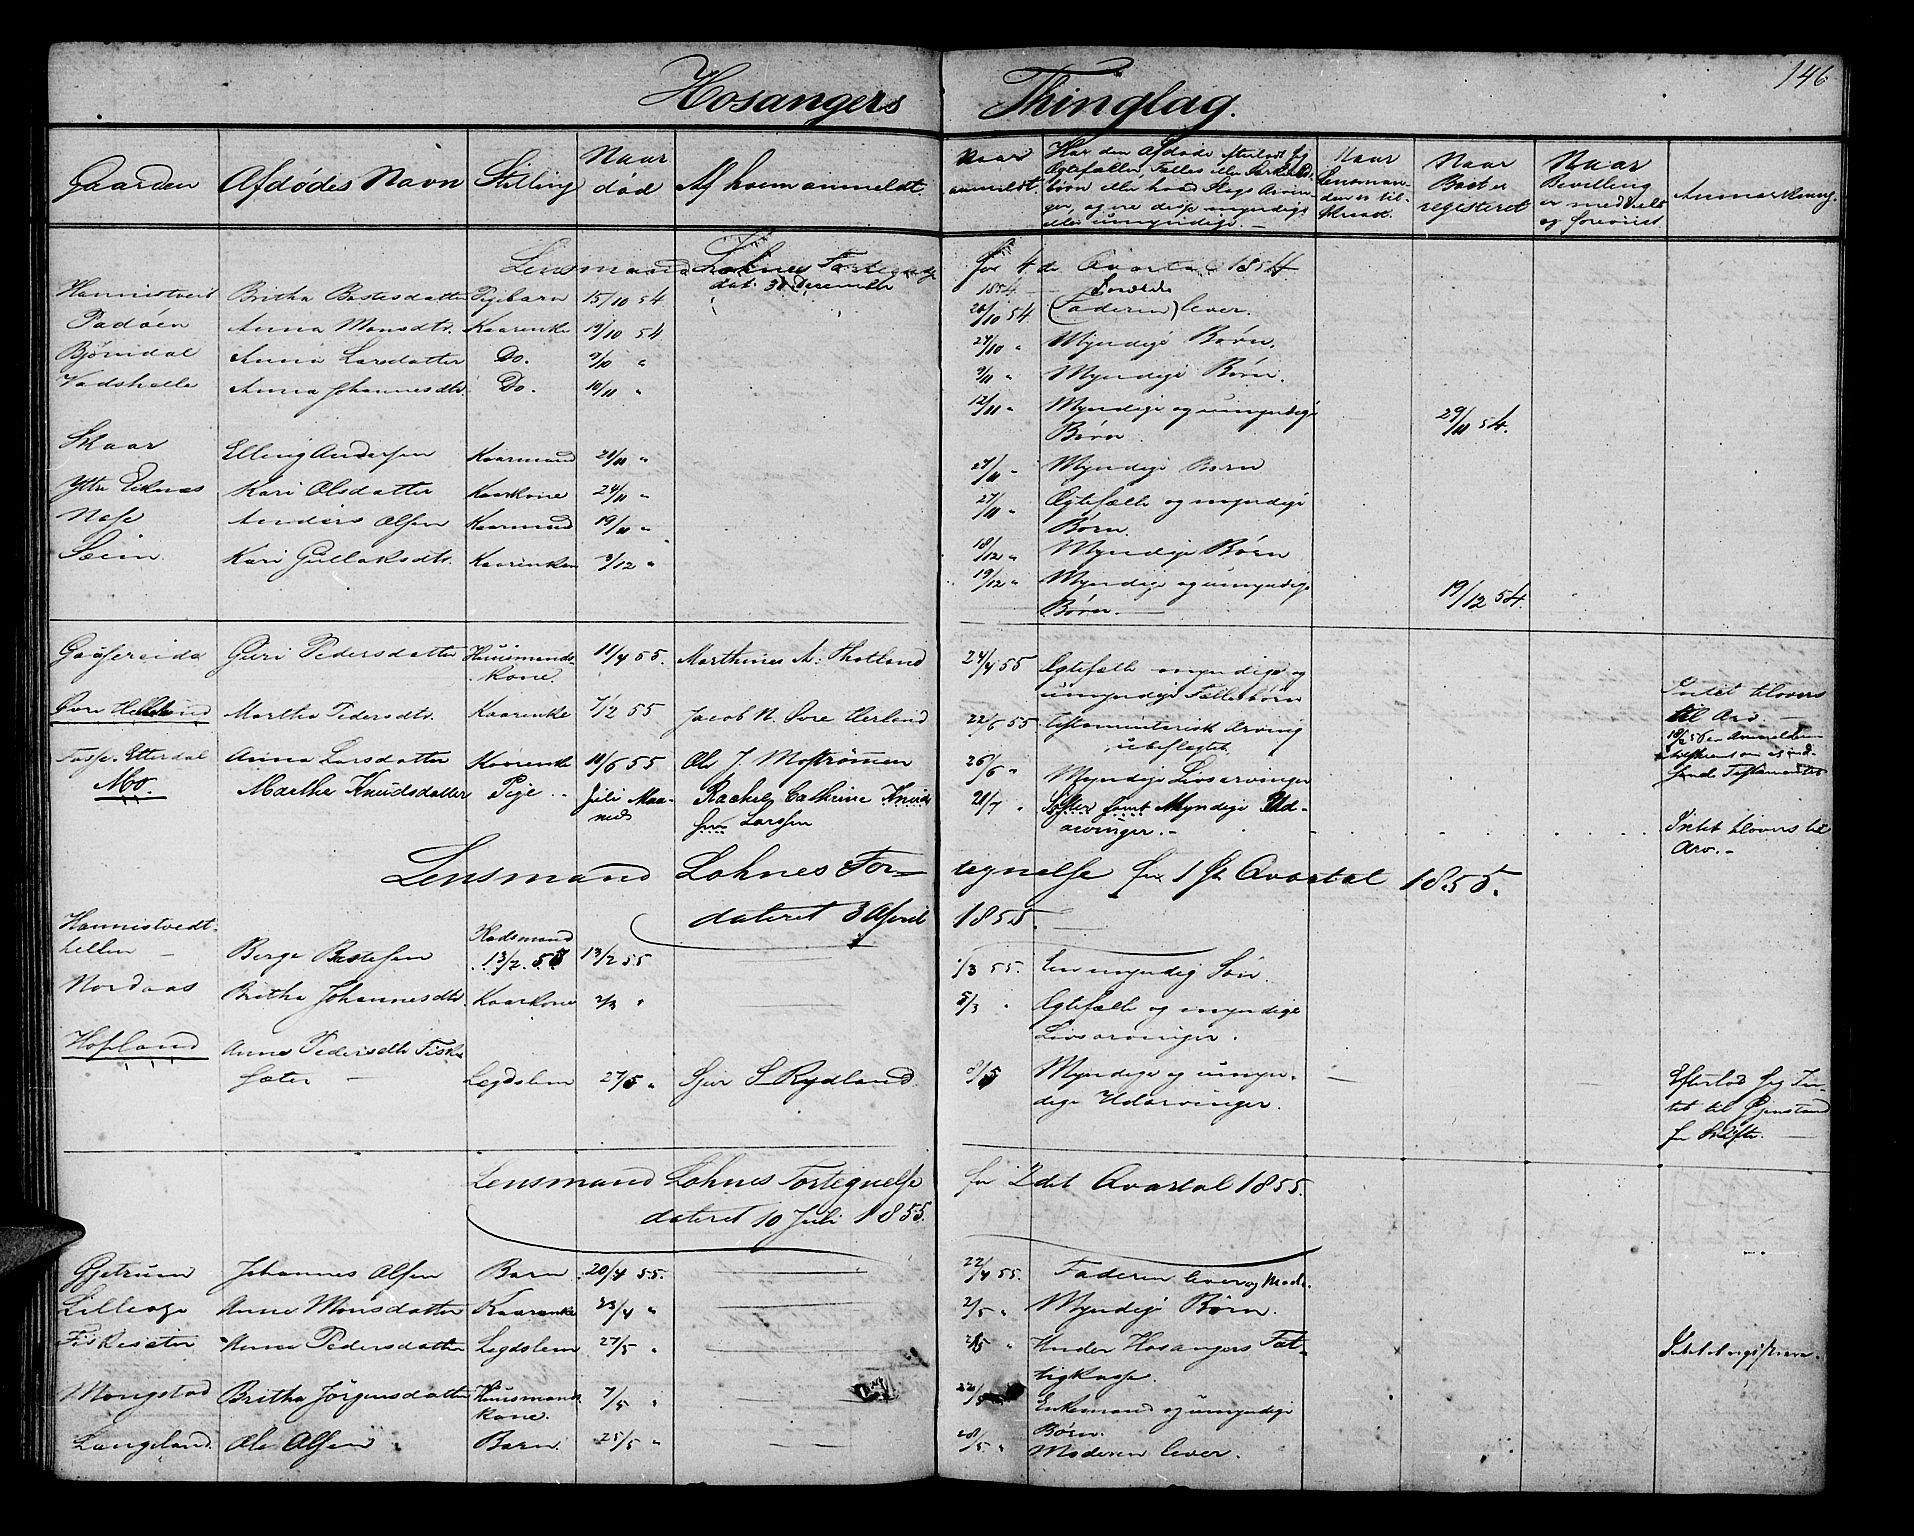 146
Hosangers Thinglag.
Gaarden Afdödes Navn Stilling Naar död Af hvem anmeldt. Naar anmeldt. Har den Afdöde efterladt sig Ægtefælle, Fælles eller Særkuld- börn eller hvad Slags Arvin- ger, og ere disse myndige eller umyndige. Naar Lensman- den er til- skrevet. Naar Boet er registeret Naar Bevilling er meddeelt og foreviist Anmærkning.
Lensmand Lohnes Fortegnelse for 4de Qvartal 1854
dat. 31 December 1854
Hannistvedt Britha Bastesdatter Pigebarn 15/10 54 20/10 54 Faderen lever.
Padöen Anna Monsdtr. Kaarenke 19/10 54 24/10 " Myndige Börn.
Björndal Anna Larsdatter Do. 9/10 " 9/11 " Myndige Börn.
Vadshelle Anna Johannesdtr. Do. 10/11 " 12/11 " Myndige og umyndige Börn. 29/11 54.
Skaar Elling Andersen Kaarmand 20/11 " 24/11 " Myndige Born
Yttre Eiknæs Kari Olsdatter Kaarkone 24/11 " 27/11 " Ægtefælle og myndige Börn.
Nese Anders Olsen Kaarmand 19/11 " 18/12 " Myndige Börn
Seim Kari Gullaksdtr. Kaarenken 3/12 " 19/12 " Myndige og umyndige Börn. 19/12 54.
Guri Pedersdatter Huusmands- kone. 11/4 55. Marthines A. Hotland 24/4 55 Ægtefælle myndige og umyndige Fællesbörn
Övre Helland Martha Pedersdtr. Kaarenke 7/12 55 Jacob N. Övre Herland 22/6 55 testamentarisk Arving ubefæstet. Intet tilovers til Arv.
Anna Larsdatter Kaarenke 10/6 55 Ole J. Moströmmen 26/6 " Myndige Livsarvinger
Mo. Marthe Knudsdatter Pige Juli Maa- neds Rachel Cathrine Knuds Larssen 20/7 " Söster samt Myndige Ud- arvinger. Intet tilovers til Arv.
Lensmand Lohnes For- tegnelse for 1ste Qvartal 1855.
dateret 3 April 1855.
Hannistvedt- hellen Berge Bastesen 13/2 55 13/2 55 1/3 55. En myndig Sön.
Nordaas Britha Johannesdtr. Kaarkone 2/3 " 5/3 " Ægtefælle og myndige Livsarvinger.
Hopland Anna Pedersdtr Fiske- sæter Lægdslem 27/5 " Sjur S. Rydland. 8/5 Myndige og umyn- dige Udarvinger. Efterlod sig In- tet til Gjenstand for Skifte.
Lensmand Lohnes Fortegnelse for 2det Qvartal 1855.
dateret 10 Juli 1855.
Gjetrum Johannes Olsen Barn 20/4 55. 22/4 55. Faderen lever og Mode.
Lilleoze Anna Monsdatter Kaarenke 23/4 " 2/5 " Myndige Börn.
Fiskesæter Anna Pedersdatter Lægdslem 27/5 " 28/5 " Under Hosangers Fat- tigkasse. Intet at registrere.
Mongstad Britha Jörgensdatter Huusmands- kone. 7/5 " 22/5 Enkemand og umyndige Börn.
Langeland. Ole Olsen Barn. 25/5 " 28/5 " Moderen lever.